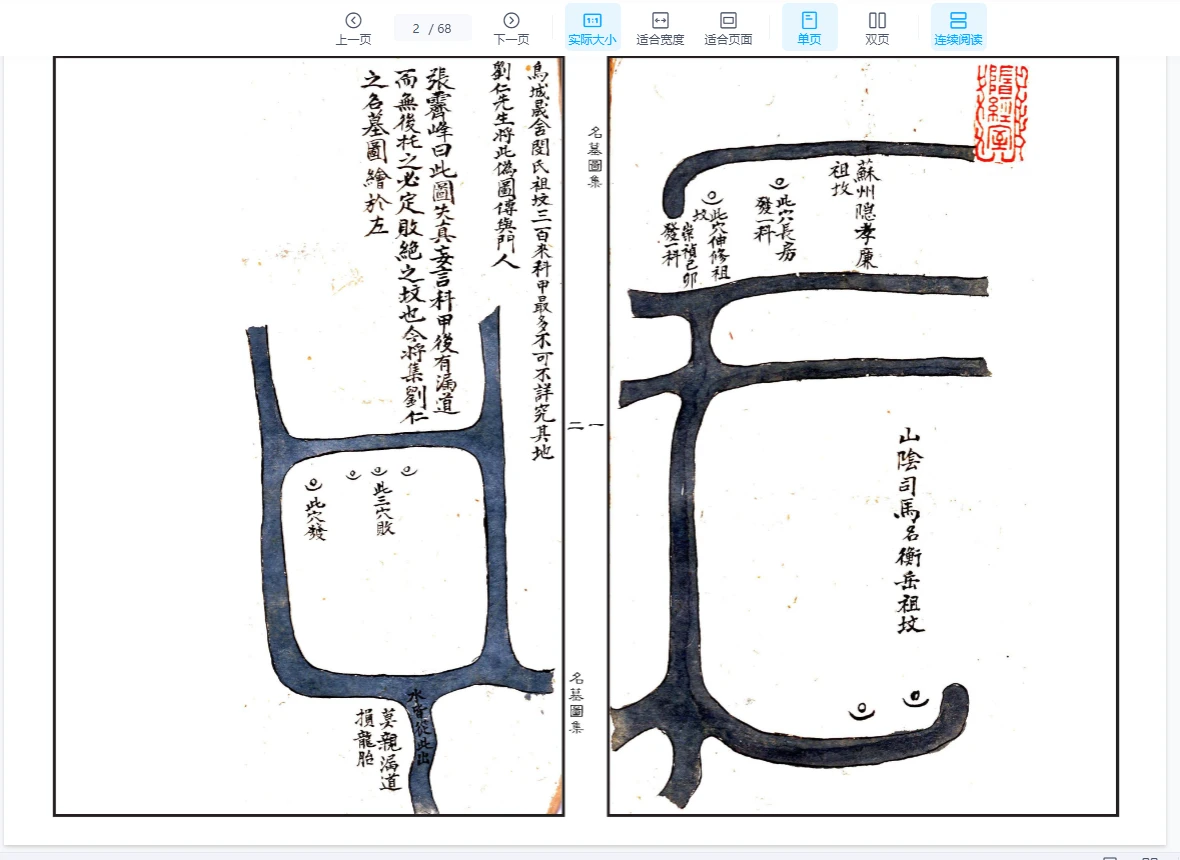 上一页
2 / 68
下一页
实际大小
适合宽度
适合页面
单页
双页
连续阅读
蘇州隱孝廉
祖坟
此穴長房
發一科
此穴伸修祖
坟
崇禎己卯
發一科
山陰司馬名衡岳祖坟
名墓圖集
一
二
名墓圖集
烏城晟舍閔氏祖坟三百來科甲最多不可不詳究其地
劉仁先生將此偽圖傳與門人
張霽峰曰此圖失真妄言科甲後有漏道
而無後托之必定敗絕之坟也今將集劉仁
之名墓圖繪於左
此三穴敗
此穴發
水皆從此出
莫親漏道
損龍胎